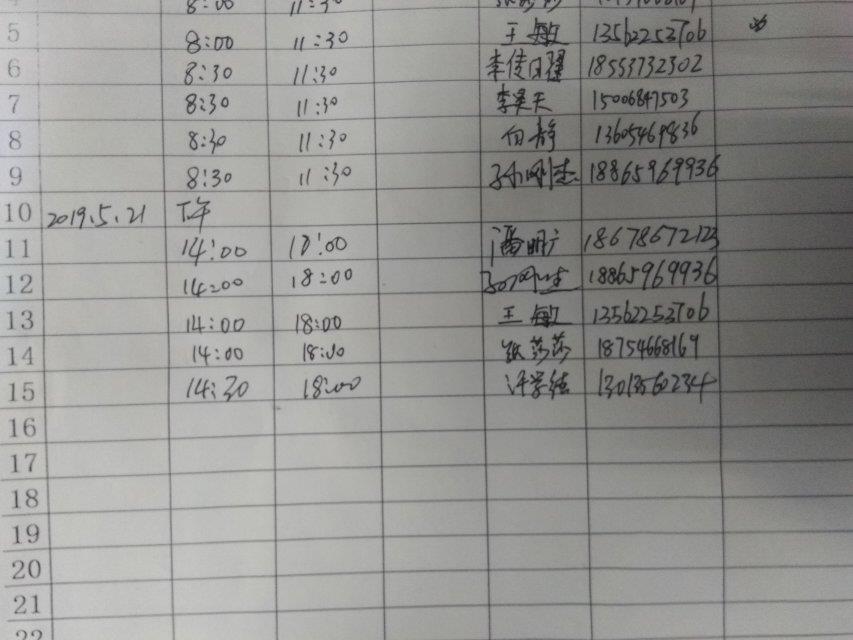 8:00 11:30
5 8:00 11:30 王敏 13562253706
6 8:30 11:30 18553732302
7 8:30 11:30 李昊天 15006847503
8 8:30 11:30 白静 13605469836
9 8:30 11:30 18865969936
10 2019.5.21 下午
11 14:00 18:00 潘明广 18678672123
12 14:00 18:00 18865969936
13 14:00 18:00 王敏 13562253706
14 14:00 18:00 张莎莎 18754668169
15 14:30 18:00 13013560234
16
17
18
19
20
21
22